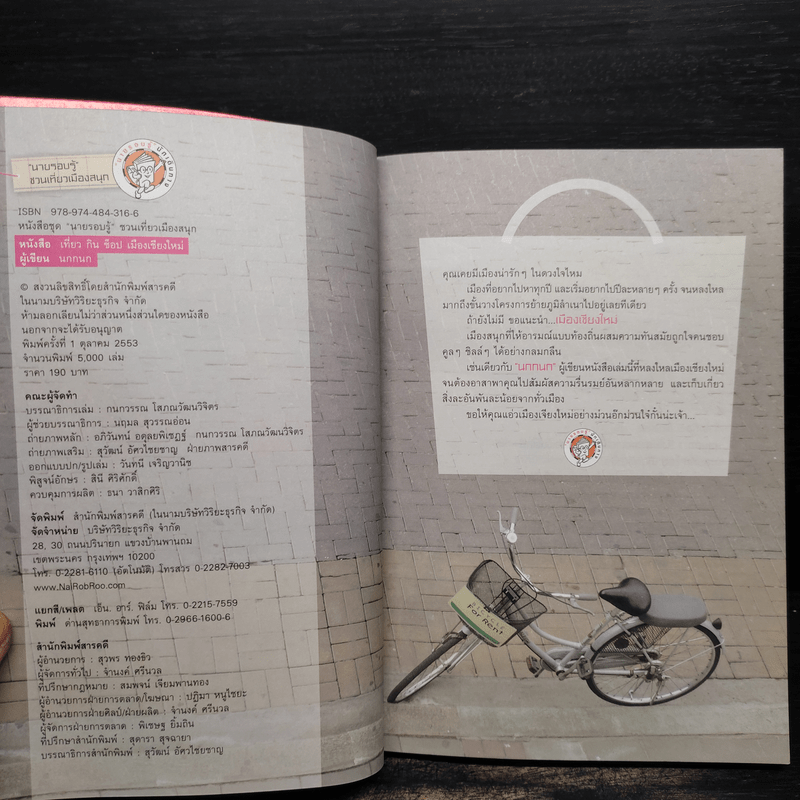 "นายรอบรู้"
ชวนเที่ยวเมืองสนุก
นายรอบรู้ นักเดินทาง
ISBN 978-974-484-316-6
หนังสือชุด "นายรอบรู้" ชวนเที่ยวเมืองสนุก
หนังสือ เที่ยว กิน ช็อป เมืองเชียงใหม่
ผู้เขียน นกกนก
© สงวนลิขสิทธิ์โดยสำนักพิมพ์สารคดี
ในนามบริษัทวิริยะธุรกิจ จำกัด
ห้ามลอกเลียนไม่ว่าส่วนหนึ่งส่วนใดของหนังสือ
นอกจากจะได้รับอนุญาต
พิมพ์ครั้งที่ 1 ตุลาคม 2553
จำนวนพิมพ์ 5,000 เล่ม
ราคา 190 บาท
คณะผู้จัดทำ
บรรณาธิการเล่ม : กนกวรรณ โสภณวัฒนวิจิตร
ผู้ช่วยบรรณาธิการ : นฤมล สุวรรณอ่อน
ถ่ายภาพหลัก : อภิวันทน์ อดุลยพิเชฏฐ์ กนกวรรณ โสภณวัฒนวิจิตร
ถ่ายภาพเสริม : สุวัฒน์ อัศวไชยชาญ ฝ่ายภาพสารคดี
ออกแบบปก/รูปเล่ม : วันทนี เจริญวานิช
พิสูจน์อักษร : สินี ศิริศักดิ์
ควบคุมการผลิต : ธนา วาสิกศิริ
จัดพิมพ์ สำนักพิมพ์สารคดี (ในนามบริษัทวิริยะธุรกิจ จำกัด)
จัดจำหน่าย บริษัทวิริยะธุรกิจ จำกัด
28, 30 ถนนปรินายก แขวงบ้านพานถม
เขตพระนคร กรุงเทพฯ 10200
โทร. 0-2281-6110 (อัตโนมัติ) โทรสาร 0-2282-7003
www.NaiRobRoo.com
แยกสี/เพลต เอ็น. อาร์. ฟิล์ม โทร. 0-2215-7559
พิมพ์ ด่านสุทธาการพิมพ์ โทร. 0-2966-1600-6
สำนักพิมพ์สารคดี
ผู้อำนวยการ : สุวพร ทองธิว
ผู้จัดการทั่วไป : จำนงค์ ศรีนวล
ที่ปรึกษากฎหมาย : สมพจน์ เจียมพานทอง
ผู้อำนวยการฝ่ายการตลาด/โฆษณา : ปฏิมา หนูไชยะ
ผู้อำนวยการฝ่ายศิลป์/ฝ่ายผลิต : จำนงค์ ศรีนวล
ผู้จัดการฝ่ายการตลาด : พิเชษฐ ยิ้มถิน
ที่ปรึกษาสำนักพิมพ์ : สุดารา สุจฉายา
บรรณาธิการสำนักพิมพ์ : สุวัฒน์ อัศวไชยชาญ
คุณเคยมีเมืองน่ารักๆ ในดวงใจไหม
เมืองที่อยากไปหาทุกปี และเริ่มอยากไปปีละหลายๆ ครั้ง จนหลงใหล
มากถึงขั้นวางโครงการย้ายภูมิลำเนาไปอยู่เลยทีเดียว
ถ้ายังไม่มี ขอแนะนำ...เมืองเชียงใหม่
เมืองสนุกที่ให้อารมณ์แบบท้องถิ่นผสมความทันสมัยถูกใจคนชอบ
คูลๆ ชิลล์ๆ ได้อย่างกลมกลืน
เช่นเดียวกับ "นกกนก" ผู้เขียนหนังสือเล่มนี้ที่หลงใหลเมืองเชียงใหม่
จนต้องอาสาพาคุณไปสัมผัสความรื่นรมย์อันหลากหลาย และเก็บเกี่ยว
สิ่งละอันพันละน้อยจากทั่วเมือง
ขอให้คุณแอ่วเมืองเจียงใหม่อย่างม่วนอีกม่วนใจ๋กั๋นน่ะเจ้า...
นายรอบรู้ นักเดินทาง
For Rent